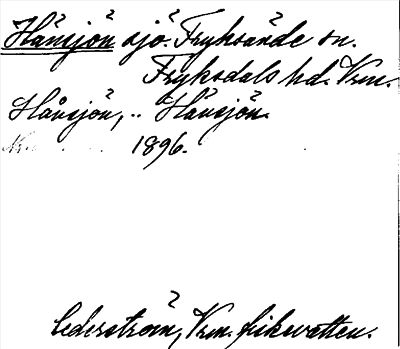 Hånsjön sjö. Fryksände sn.
Fryksdals hd. Vrm.
Hånsjön, .. Hånsjön.
1896.
Cederström, Vrm. fiskevatten.